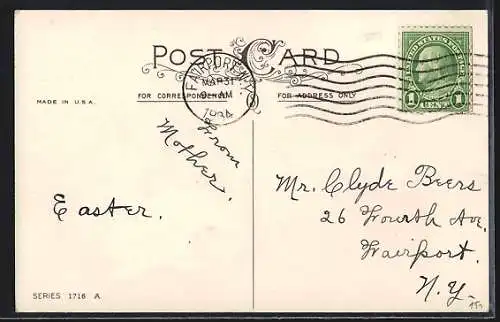 POST CARD
FAIRPORT, N.Y.
MAR 31
9 AM
1934
UNITED STATES POSTAGE
1 CENT 1
MADE IN U.S.A.
FOR CORRESPONDENCE
FOR ADDRESS ONLY
From
Mother.
Easter.
Mr. Clyde Beers
26 Fourth Ave.
Fairport.
N.Y.
SERIES 1716 A